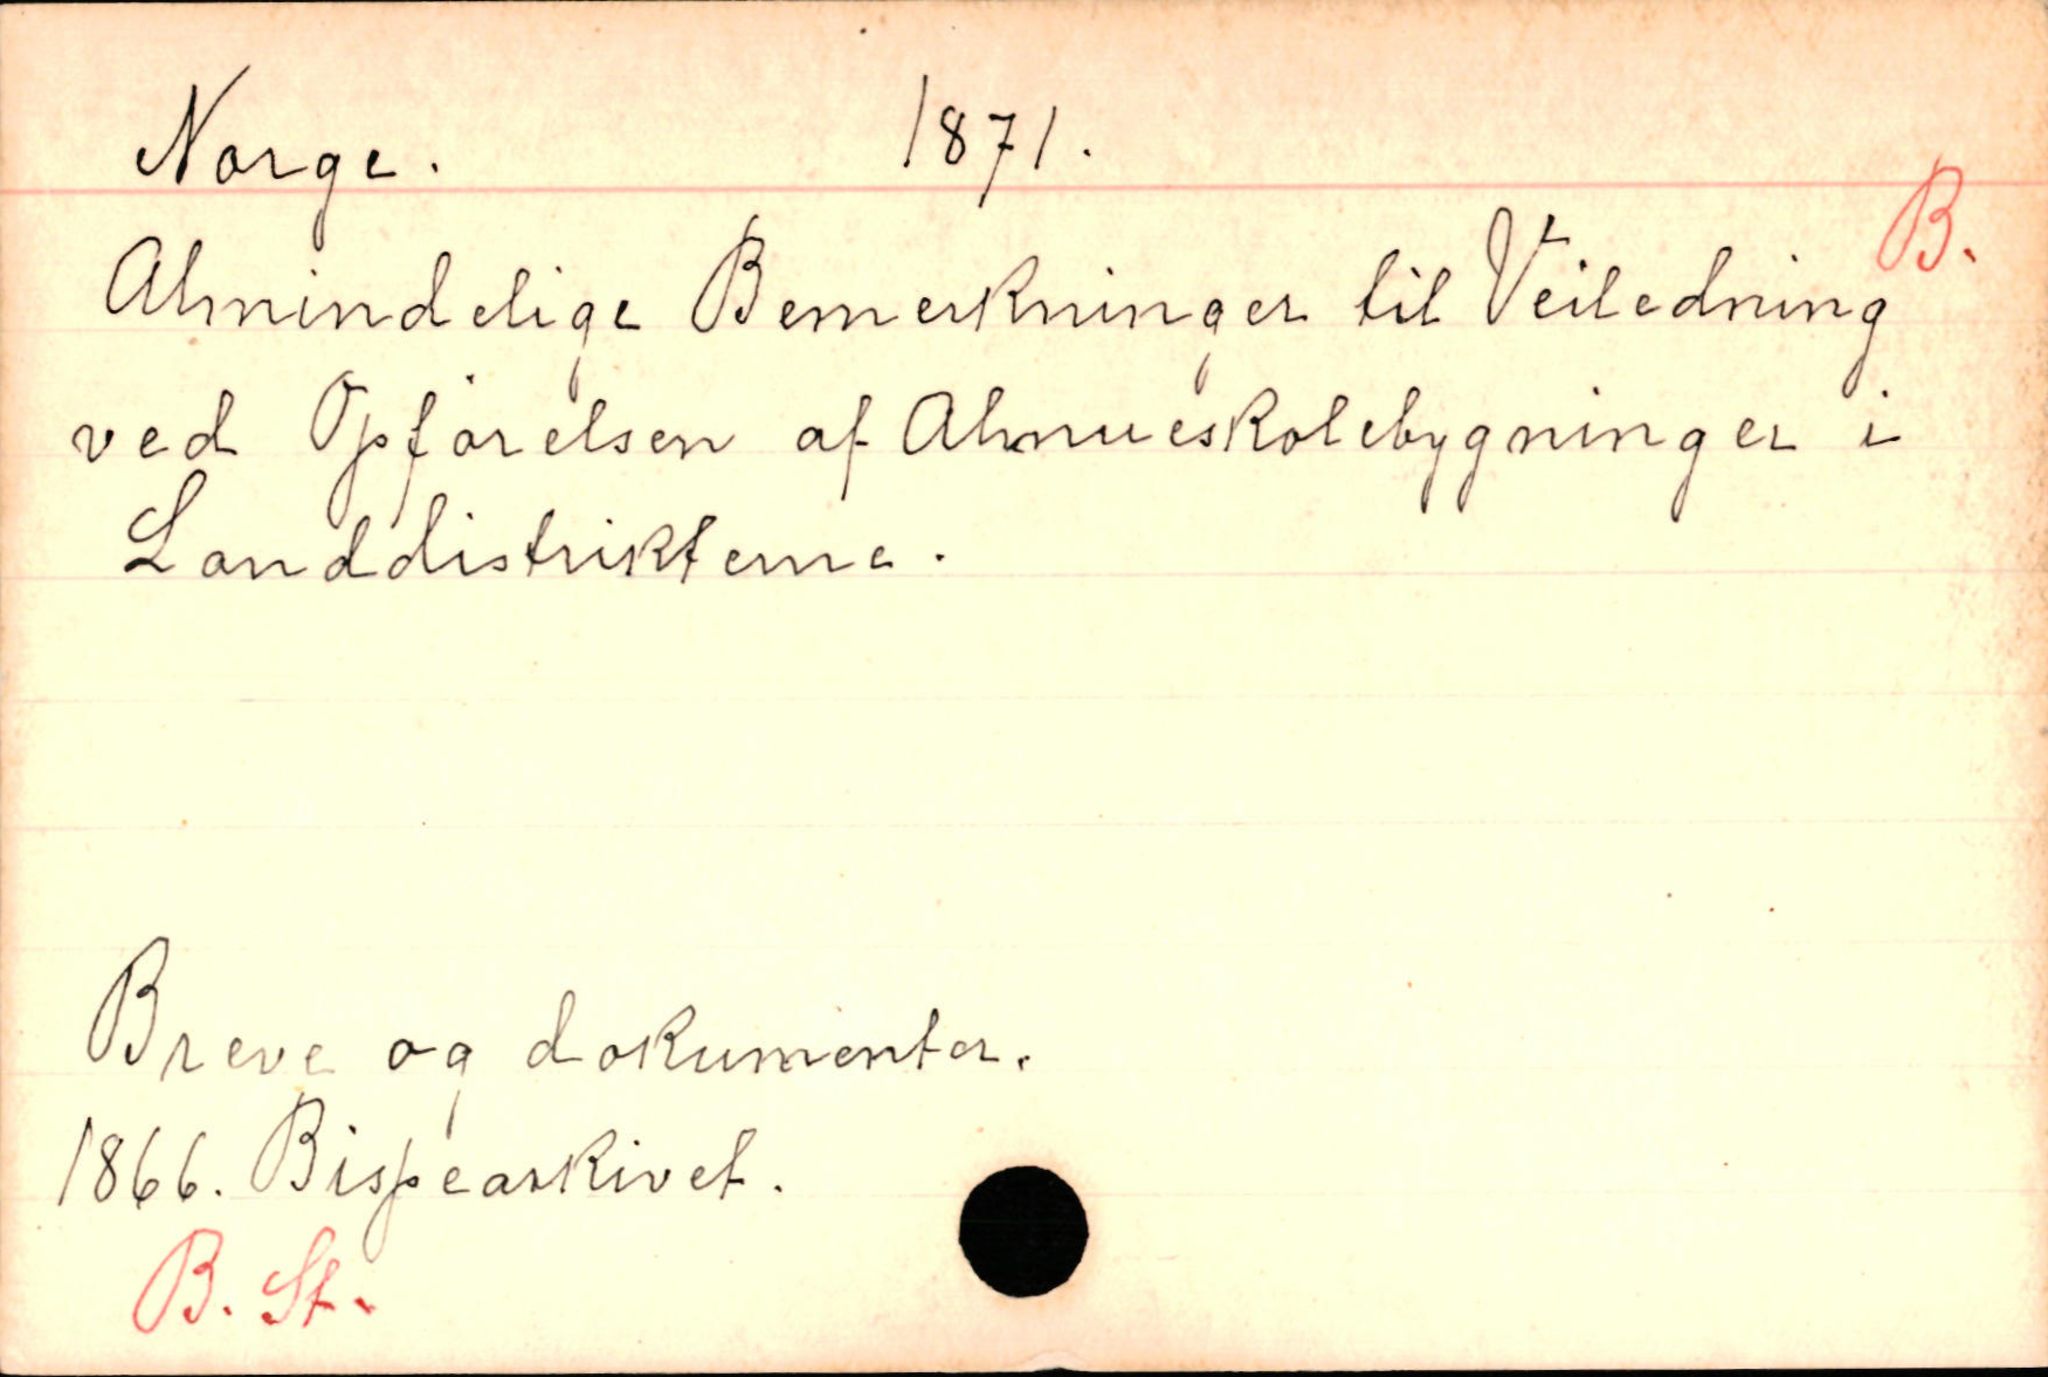 Norge. 1871.
B.
Almindelige Bemerkninger til Veiledning
ved Opførelsen af Almueskolebygninger i
Landdistrikterne.
Breve og dokumenter.
1866. Bispearkivet.
B. St.